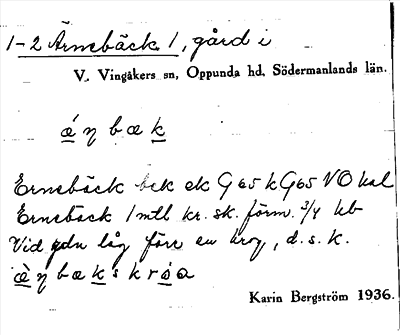 1-2 Ärnebäck 1, gård i
V. Vingåkers sn, Oppunda hd, Södermanlands län.
ǽ ŋ b æ k
Ernebäck bek ek G65 k G65 VO kal
Ernebäck 1 mtl kr. sk. förm. 3/4 hb
Vid gdn låg förr en krog, d.s.k.
æ̀ ŋ b æ k s k r ó a
Karin Bergström 1936.